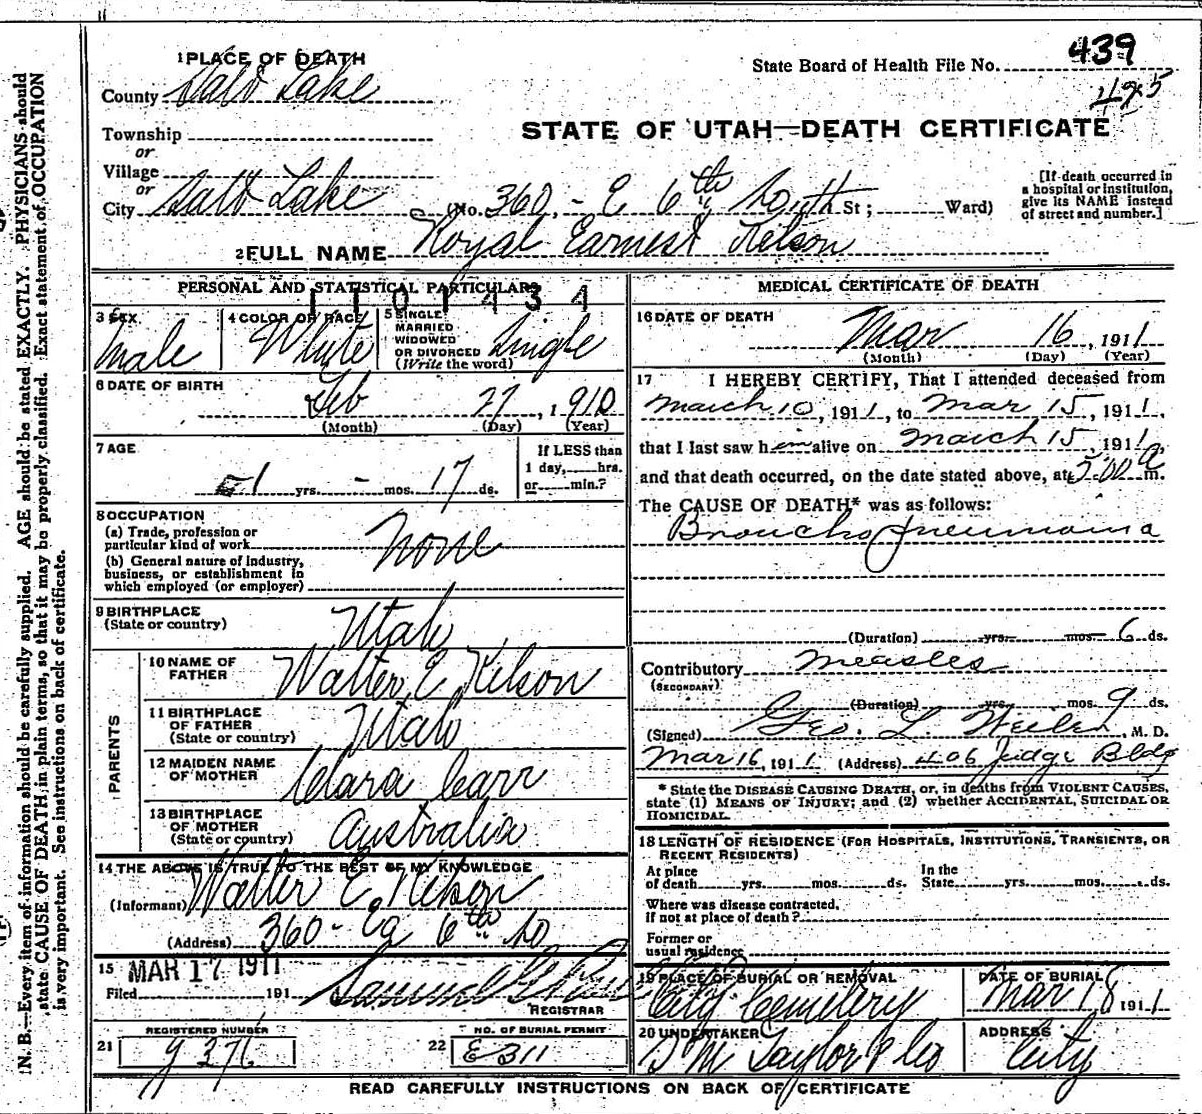 1 PLACE OF DEATH
County Salt Lake
State Board of Health File No. 439
425
STATE OF UTAH—DEATH CERTIFICATE
Township
or
Village
or
City Salt Lake (No. 360 - E 6th South St; Ward)
[If death occurred in a hospital or institution, give its NAME instead of street and number.]
2 FULL NAME Royal Earnest Nelson
PERSONAL AND STATISTICAL PARTICULARS
1101434
3 SEX male
4 COLOR OR RACE White
5 SINGLE MARRIED WIDOWED OR DIVORCED (Write the word) Single
6 DATE OF BIRTH
Feb 27, 1910
(Month) (Day) (Year)
7 AGE
1 yrs. - mos. 17 ds.
If LESS than 1 day, hrs. or min.?
8 OCCUPATION
(a) Trade, profession or particular kind of work
(b) General nature of Industry, business, or establishment in which employed (or employer)
None
9 BIRTHPLACE (State or country) Utah
PARENTS
10 NAME OF FATHER Walter E Nelson
11 BIRTHPLACE OF FATHER (State or country) Utah
12 MAIDEN NAME OF MOTHER Clara Carr
13 BIRTHPLACE OF MOTHER (State or country) Australia
14 THE ABOVE IS TRUE TO THE BEST OF MY KNOWLEDGE
(Informant) Walter E. Nelson
(Address) 360 - Ea 6th So
15 MAR 17 1911
Filed 191
REGISTRAR
REGISTERED NUMBER
21 g 376
NO. OF BURIAL PERMIT
22 E 311
MEDICAL CERTIFICATE OF DEATH
16 DATE OF DEATH
Mar 16, 1911
(Month) (Day) (Year)
17 I HEREBY CERTIFY, That I attended deceased from
March 10, 1911, to Mar 15, 1911,
that I last saw him alive on March 15, 1911,
and that death occurred, on the date stated above, at 5:00 a m.
The CAUSE OF DEATH* was as follows:
Broncho pneumonia
(Duration) yrs. mos. 6 ds.
Contributory Measles
(SECONDARY)
(Duration) yrs. mos. 9 ds.
(Signed) Geo. L. Weiler, M. D.
Mar 16, 1911 (Address) 406 Judge Bldg
* State the DISEASE CAUSING DEATH, or, in deaths from VIOLENT CAUSES, state (1) MEANS OF INJURY; and (2) whether ACCIDENTAL, SUICIDAL OR HOMICIDAL.
18 LENGTH OF RESIDENCE (FOR HOSPITALS, INSTITUTIONS, TRANSIENTS, OR RECENT RESIDENTS)
At place of death yrs. mos. ds. In the State yrs. mos. ds.
Where was disease contracted, if not at place of death?
Former or usual residence
19 PLACE OF BURIAL OR REMOVAL City Cemetery
DATE OF BURIAL Mar 18 1911
20 UNDERTAKER S M Taylor & Co
ADDRESS City
READ CAREFULLY INSTRUCTIONS ON BACK OF CERTIFICATE
N. B.—Every item of information should be carefully supplied. AGE should be stated EXACTLY. PHYSICIANS should
state CAUSE OF DEATH in plain terms, so that it may be properly classified. Exact statement of OCCUPATION
is very important. See instructions on back of certificate.